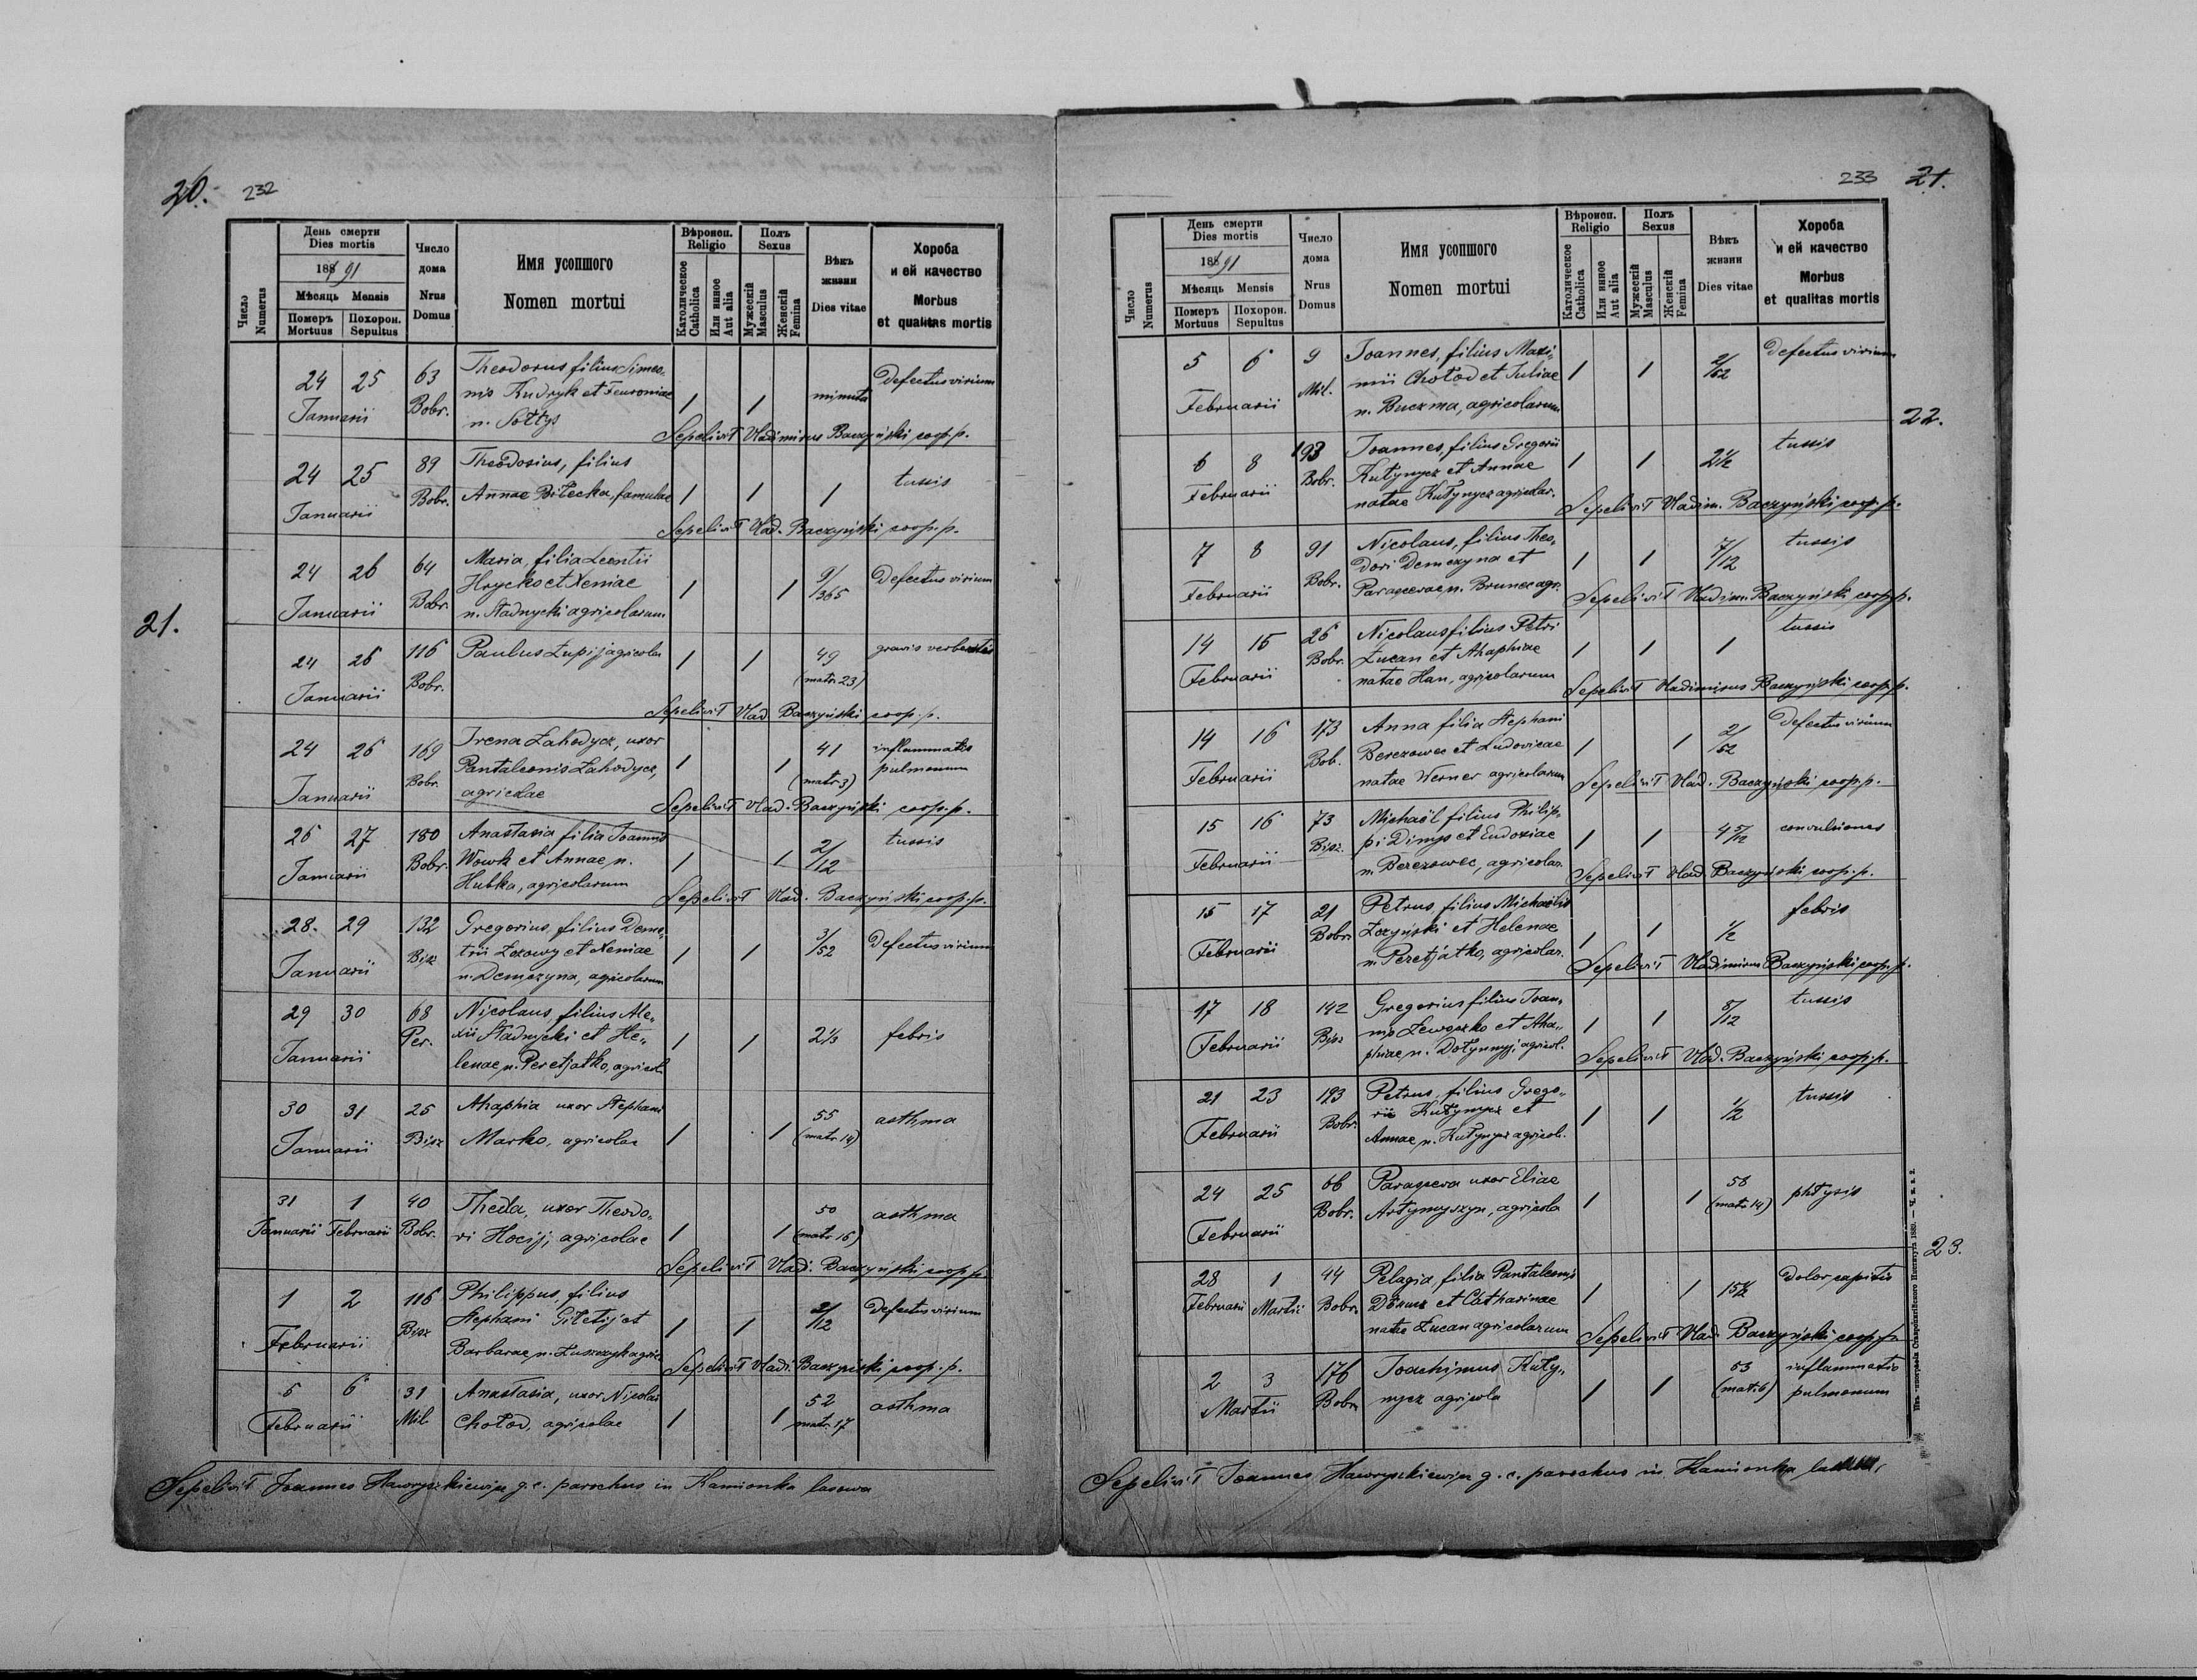 20. 232
Число Numerus
День смерти
Dies mortis
1891
Мѣсяць Mensis
Померъ Mortuus
Похорон. Sepultus
Число дома
Nrus Domus
Имя усопшого
Nomen mortui
Вѣроисп.
Religio
Католическое Catholica
Или инное Aut alia
Полъ
Sexus
Мужескій Masculus
Женскій Femina
Вѣкъ жизни
Dies vitae
Хороба
и ей качество
Morbus
et qualitas mortis
24 25 63 Theodorus filius Simeo„ Defectus virium
Januarii Bobr. nis Kudryk et Feuroniae 1 1 minuta
n. Sołtys
Sepelivit Vladimirus Baczyński coop. p.
24 25 89 Theodosius, filius tussis
Januarii Bobr. Annae Biłecka, famulae 1 1 1
Sepelivit Vlad. Baczyński coop. p.
24 26 64 Maria, filia Leontii 9/365 Defectus virium
Januarii Bobr. Hryćko et Xeniae 1 1
n. Stadnycki agricolarum
21.
24 26 116 Paulus Łupij agricola 1 1 49 gravis
Januarii Bobr. (matr. 23)
Sepelivit Vlad. Baczyński coop. p.
24 26 169 Irena Zahodycz, uxor 1 1 41 inflammatio
Januarii Bobr. Pantaleonis Zahodycz, (matr. 3) pulmonum
agricolae
Sepelivit Vlad. Baczyński coop. p.
26 27 180 Anastasia filia Joannis 2/12 tussis
Januarii Bobr. Wowk et Annae n. 1 1
Hubka, agricolarum
Sepelivit Vlad. Baczyński coop. p.
28. 29 132 Gregorius, filius Deme„ 3/52 Defectus virium
Januarii Bisz trii Łozowy et Xeniae 1 1
n. Demczyna, agricolarum
29 30 68 Nicolaus, filius Ale„ 2 1/3 febris
Januarii Per. xii Stadnycki et He„ 1 1
lenae n. Peretjatko, agricol.
30 31 25 Ahaphia uxor Stephani 55 asthma
Januarii Bisz Marko, agricolae 1 1 (matr. 14)
31 1 40 Thecla, uxor Theodo„ 50 asthma
Januarii Februarii Bobr. ri Hocij, agricolae 1 1 (matr. 16)
Sepelivit Vlad. Baczyński coop. p.
1 2 116 Philippus, filius 2/12 Defectus virium
Februarii Bisz Stephani Giletij et 1 1
Barbarae n. Łuszczyk agric.
Sepelivit Vlad. Baczyński coop. p.
5 6 31 Anastasia, uxor Nicolai 52 asthma
Februarii Mil. Chołod, agricolae 1 1 matr. 17
Sepelivit Joannes Hawryszkiewicz g. c. parochus in Kamionka lasowa
233 21.
Число Numerus
День смерти
Dies mortis
1891
Мѣсяць Mensis
Померъ Mortuus
Похорон. Sepultus
Число дома
Nrus Domus
Имя усопшого
Nomen mortui
Вѣроисп.
Religio
Католическое Catholica
Или инное Aut alia
Полъ
Sexus
Мужескій Masculus
Женскій Femina
Вѣкъ жизни
Dies vitae
Хороба
и ей качество
Morbus
et qualitas mortis
5 6 9 Joannes, filius Maxi„ 2/52 Defectus virium
Februarii Mil. mii Chołod et Juliae 1 1
n. Buczma, agricolarum
22.
6 8 193 Joannes, filius Gregorii 2 1/2 tussis
Februarii Bobr. Kułynycz et Annae 1 1
natae Kułynycz agricolar.
Sepelivit Vladim. Baczyński coop. p.
7 8 91 Nicolaus, filius Theo„ 7/12 tussis
Februarii Bobr. dori Demczyna et 1 1
Parascevae n. Brunec agr.
Sepelivit Vladim. Baczyński coop. p.
14 15 26 Nicolaus filius Petri tussis
Februarii Bobr. Łucan et Ahaphiae 1 1 1
natae Han, agricolarum
Sepelivit Vladimirus Baczyński coop. p.
14 16 173 Anna filia Stephani 2/52 Defectus virium
Februarii Bob. Berezowec et Ludovicae 1 1
natae Werner agricolarum
Sepelivit Vlad. Baczyński coop. p.
15 16 73 Michaël filius Philip„ 4 5/12 convulsiones
Februarii Bisz. pi Dimys et Eudoxiae 1 1
n. Berezowec, agricolar.
Sepelivit Vlad. Baczyński coop. p.
15 17 21 Petrus, filius Michaëlis febris
Februarii Bobr. Łozyński et Helenae 1 1 1/2
n. Peretjátko, agricolar.
Sepelivit Vladimirus Baczyński coop. p.
17 18 142 Gregorius filius Joan„ 8/12 tussis
Februarii Bisz nis Lewoczko et Aha„ 1 1
phiae n. Dołynnyj, agricol.
Sepelivit Vlad. Baczyński coop. p.
21 23 193 Petrus, filius Grego„ 1/2 tussis
Februarii Bobr. rii Kułynycz et 1 1
Annae n. Kułynycz agricol.
24 25 66 Parasceva uxor Eliae 58 phtysis
Februarii Bobr. Artymyszyn, agricola 1 1 (matr. 14)
23.
28 1 44 Pelagia, filia Pantaleonis 15 1/2 Dolor capitis
Februarii Martii Bobr. et Catharinae 1 1
natae Łucan agricolarum
Sepelivit Vlad. Baczyński coop. p.
2 3 176 Joachimus Kuły„ 53 inflammatio
Martii Bobr. nycz agricola 1 1 (matr. 6) pulmonum
Sepelivit Joannes Hawryszkiewicz g. c. parochus in Kamionka
Изъ типографіи Ставропигійского Института 1889. — Ч. в. з 2.